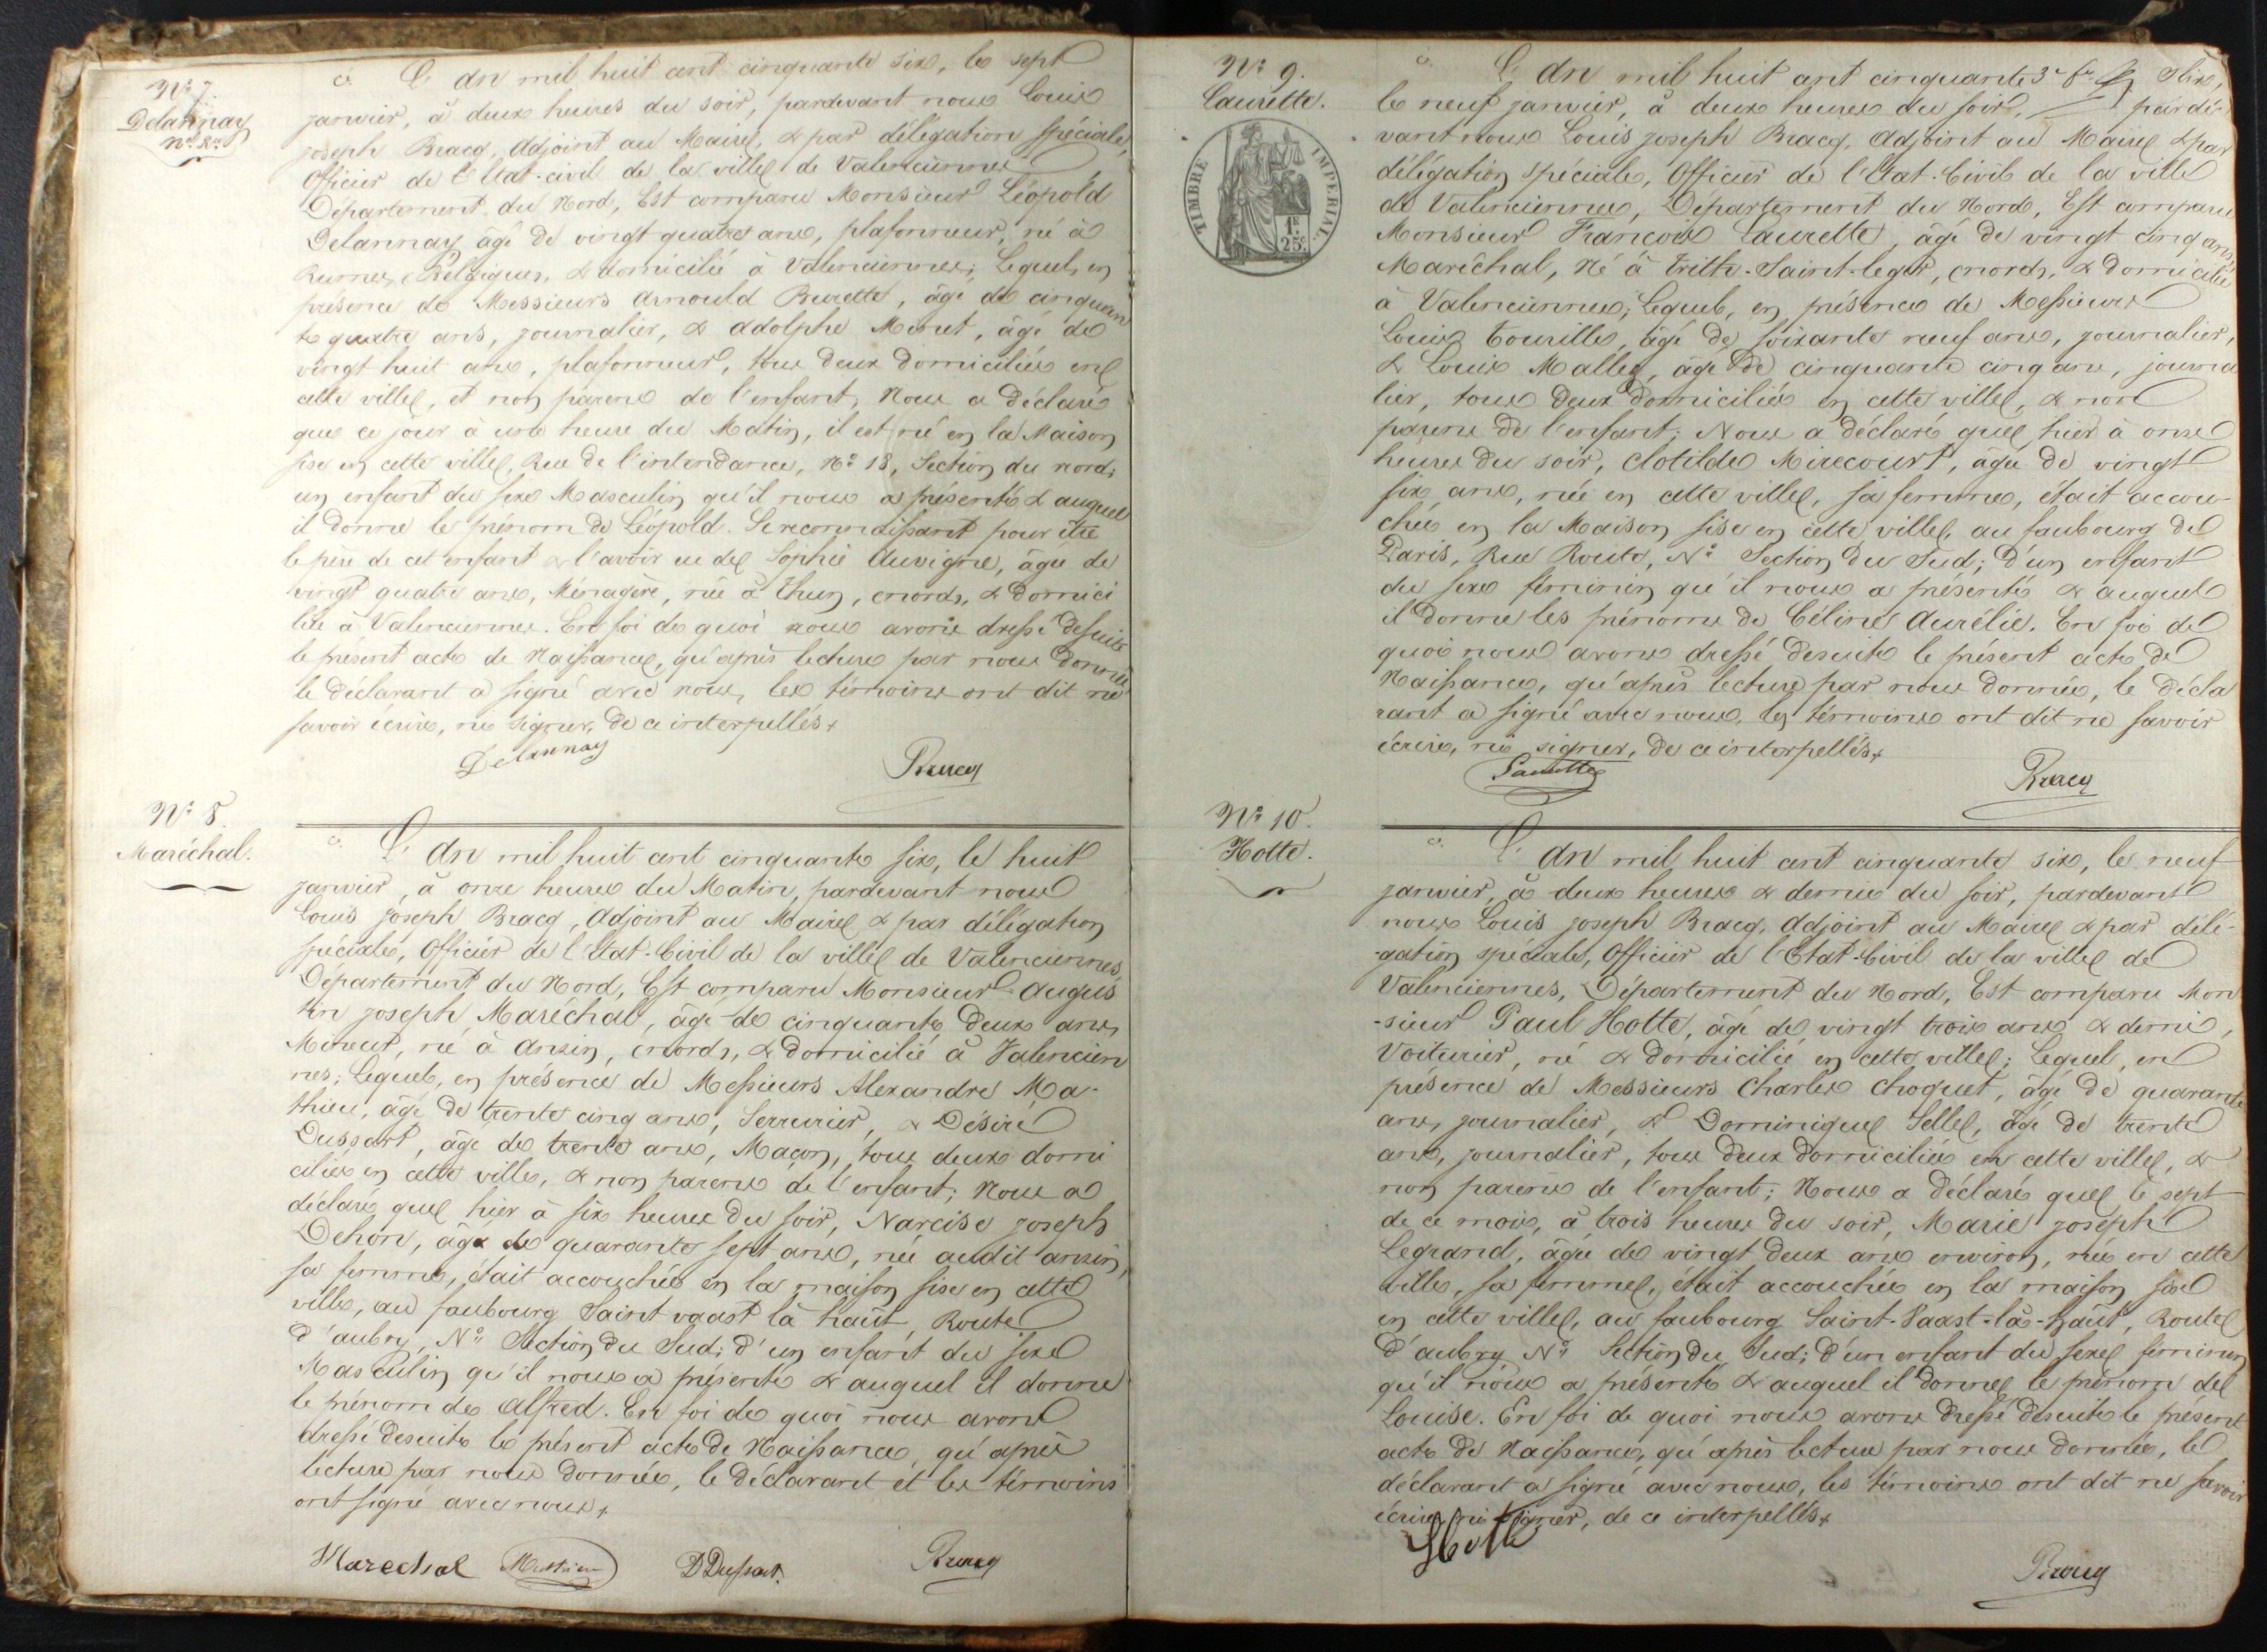 N° 7.
Delannay
n.el R.u
L'An mil huit cent cinquante six, le sept
janvier, à deux heures du soir, pardevant nous Louis
joseph Bracq, Adjoint au Maire, & par délégation spéciale,
Officier de l'Etat-civil de la ville de Valenciennes
Département du Nord, Est comparu Monsieur Léopold
Delannay âgé de vingt quatre ans, plafonneur, né à
Rumes, (Belgique), & domicilié à Valenciennes; Lequel, en
présence de Messieurs Arnould Burette, âgé de cinquan
te quatre ans, journalier, & adolphe Minet, âgé de
vingt huit ans, plafonneur, tous deux domiciliés en
cette ville, et non parens de l'enfant; Nous a déclaré
que ce jour à une heure du Matin, il est né en la Maison
sise en cette ville, Rue de l'intendance, N° 18, Section du nord;
un enfant du sexe Masculin qu'il nous a présenté & auquel
il donne le prénom de Léopold. Se reconnaissant pour être
le père de cet enfant & l'avoir eu de Sophie Auvigne, âgée de
vingt quatre ans, Ménagère, née à Thun, (nord), & domici
liée à Valenciennes. En foi de quoi nous avons dressé desuite
le présent acte de Naissance, qu'après lecture par nous donnée
le déclarant a signé avec nous, les témoins ont dit ne
savoir écrire, ni signer, de ce interpellés.
Delannay
Bracq
N° 8.
Maréchal.
L'An mil huit cent cinquante six, le huit
janvier, à onze heures du Matin, pardevant nous
Louis joseph Bracq, Adjoint au Maire & par délégation
spéciale, Officier de l'Etat-Civil de la ville de Valenciennes
Département du Nord, Est comparu Monsieur Augus
tin joseph Maréchal, âgé de cinquante deux ans,
Mineur, né à Anzin, (nord), & domicilié à Valencien
nes; Lequel, en présence de Messieurs Alexandre Ma-
thieu, âgé de trente cinq ans, Serrurier, & Désiré
Dussart, âgé de trente ans, Maçon, tous deux domi
ciliés en cette ville, & non parens de l'enfant; Nous a
déclaré que hier à six heures du soir, Narcise joseph
Dehon, âgée de quarante sept ans, née audit anzin,
sa femme, était accouchée en la maison sise en cette
ville, au faubourg Saint vaast là haut, Route
d'aubry, N° Section du Sud; d'un enfant du sexe
Masculin qu'il nous a présenté & auquel il donne
le prénom de Alfred. En foi de quoi nous avons
dressé desuite le présent acte de Naissance, qu'après
lecture par nous donnée, le déclarant et les témoins
ont signé avec nous.
Marechal Mathieu D Dussart. Bracq
N° 9.
Laurette.
TIMBRE IMPERIAL.
1F.
25C.
L'An mil huit cent cinquante 3e fe six,
le neuf janvier, à deux heures du soir, pardé-
vant nous Louis joseph Bracq, Adjoint au Maire & par
délégation spéciale, Officier de l'Etat-Civil de la ville
de Valenciennes, Département du Nord, Est comparu
Monsieur François Laurette, âgé de vingt cinq ans,
Maréchal, Né à Trith-Saint-leger, (nord), & domicilié
à Valenciennes; Lequel, en présence de Messieurs
Louis Touville, âgé de soixante neuf ans, journalier,
& Louis Mallet, âgé de cinquante cinq ans, journa
lier, tous deux domiciliés en cette ville, & non
parens de l'enfant; Nous a déclaré que hier à onze
heures du soir, Clotilde Mirecourt, âgée de vingt
six ans, née en cette ville, sa femme, était accou-
chée en la Maison sise en cette ville, au faubourg de
Paris, Rue Route, N° Section du Sud; d'un enfant
du sexe féminin qu'il nous a présenté & auquel
il donne les prénoms de Céline Aurélie. En foi de
quoi nous avons dressé desuite le présent acte de
Naissance, qu'après lecture par nous donnée, le décla
rant a signé avec nous, les témoins ont dit ne savoir
écrire, ni signer, de ce interpellés.
Laurette
Bracq
N° 10.
Hotte.
L'An mil huit cent cinquante six, le neuf
janvier, à deux heures & demie du soir, pardevant
nous Louis joseph Bracq, Adjoint au Maire & par délé-
-gation spéciale, Officier de l'Etat-Civil de la ville de
Valenciennes, Département du Nord, Est comparu Mon
-sieur Paul Hotte, âgé de vingt trois ans & demi,
Voiturier, né & domicilié en cette ville; Lequel, en
présence de Messieurs Charles Choquet, âgé de quarante
ans, journalier, & Dominique Selle, âgé de trente
ans, journalier, tous deux domiciliés en cette ville, &
non parens de l'enfant; Nous a déclaré que le sept
de ce mois, à trois heures du soir, Marie joseph
Legrand, âgée de vingt deux ans environ, née en cette
ville, sa femme, était accouchée en la maison sise
en cette ville, au faubourg Saint-Vaast-là-haut, Route
d'aubry N° Section du Sud; d'un enfant du sexe féminin
qu'il nous a présenté & auquel il donne le prénom de
Louise. En foi de quoi nous avons dressé desuite le présent
acte de Naissance, qu'après lecture par nous donnée, le
déclarant a signé avec nous, les témoins ont dit ne savoir
écrire, ni signer, de ce interpellés.
Hotte
Bracq